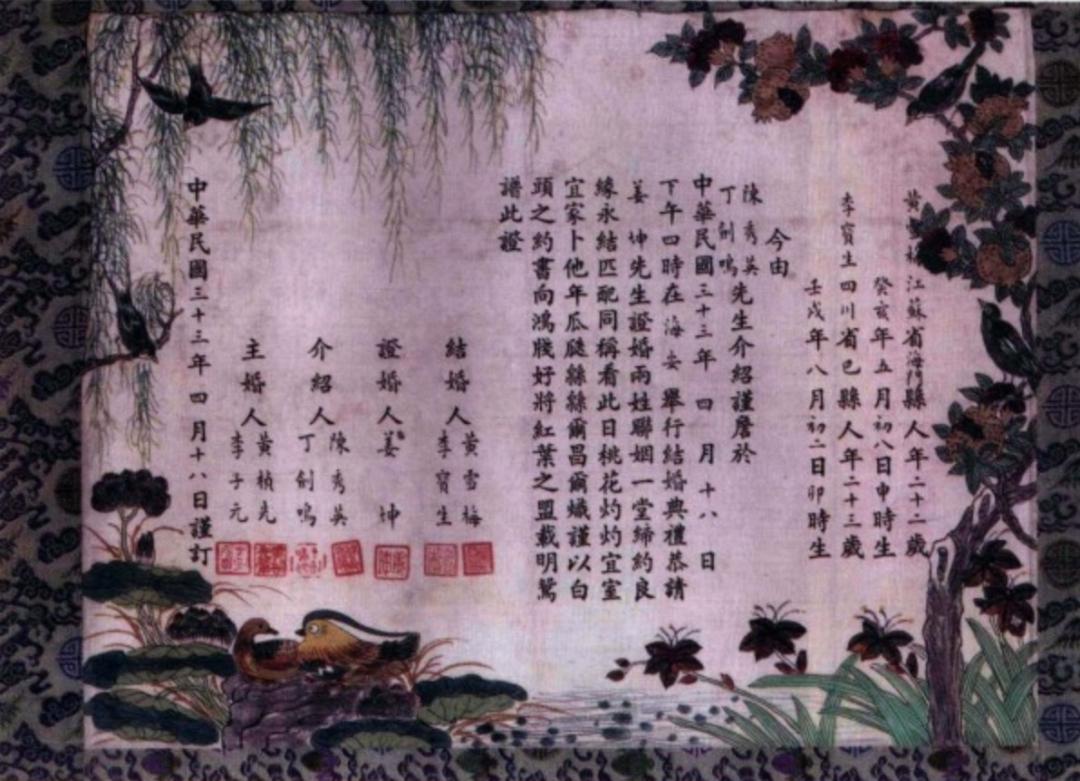 黃雪梅 江蘇省海門縣人年二十二歲
癸亥年五月初八日申時生
李寶生 四川省巴縣人年二十三歲
壬戌年八月初二日卯時生
今由
陳秀英
丁劍鳴 先生介紹謹詹於
中華民國三十三年 四月十八日
下午四時在海安舉行結婚典禮恭請
姜 坤先生證婚兩姓聯姻一堂締約良
緣永結匹配同稱看此日桃花灼灼宜室
宜家卜他年瓜瓞緜緜爾昌爾熾謹以白
頭之約書向鴻牋好將紅葉之盟載明鴛
譜此證
結婚人 黃雪梅
李寶生
證婚人 姜 坤
介紹人 陳秀英
丁劍鳴
主婚人 黃楨先
李子元
中華民國三十三年四月十八日謹訂